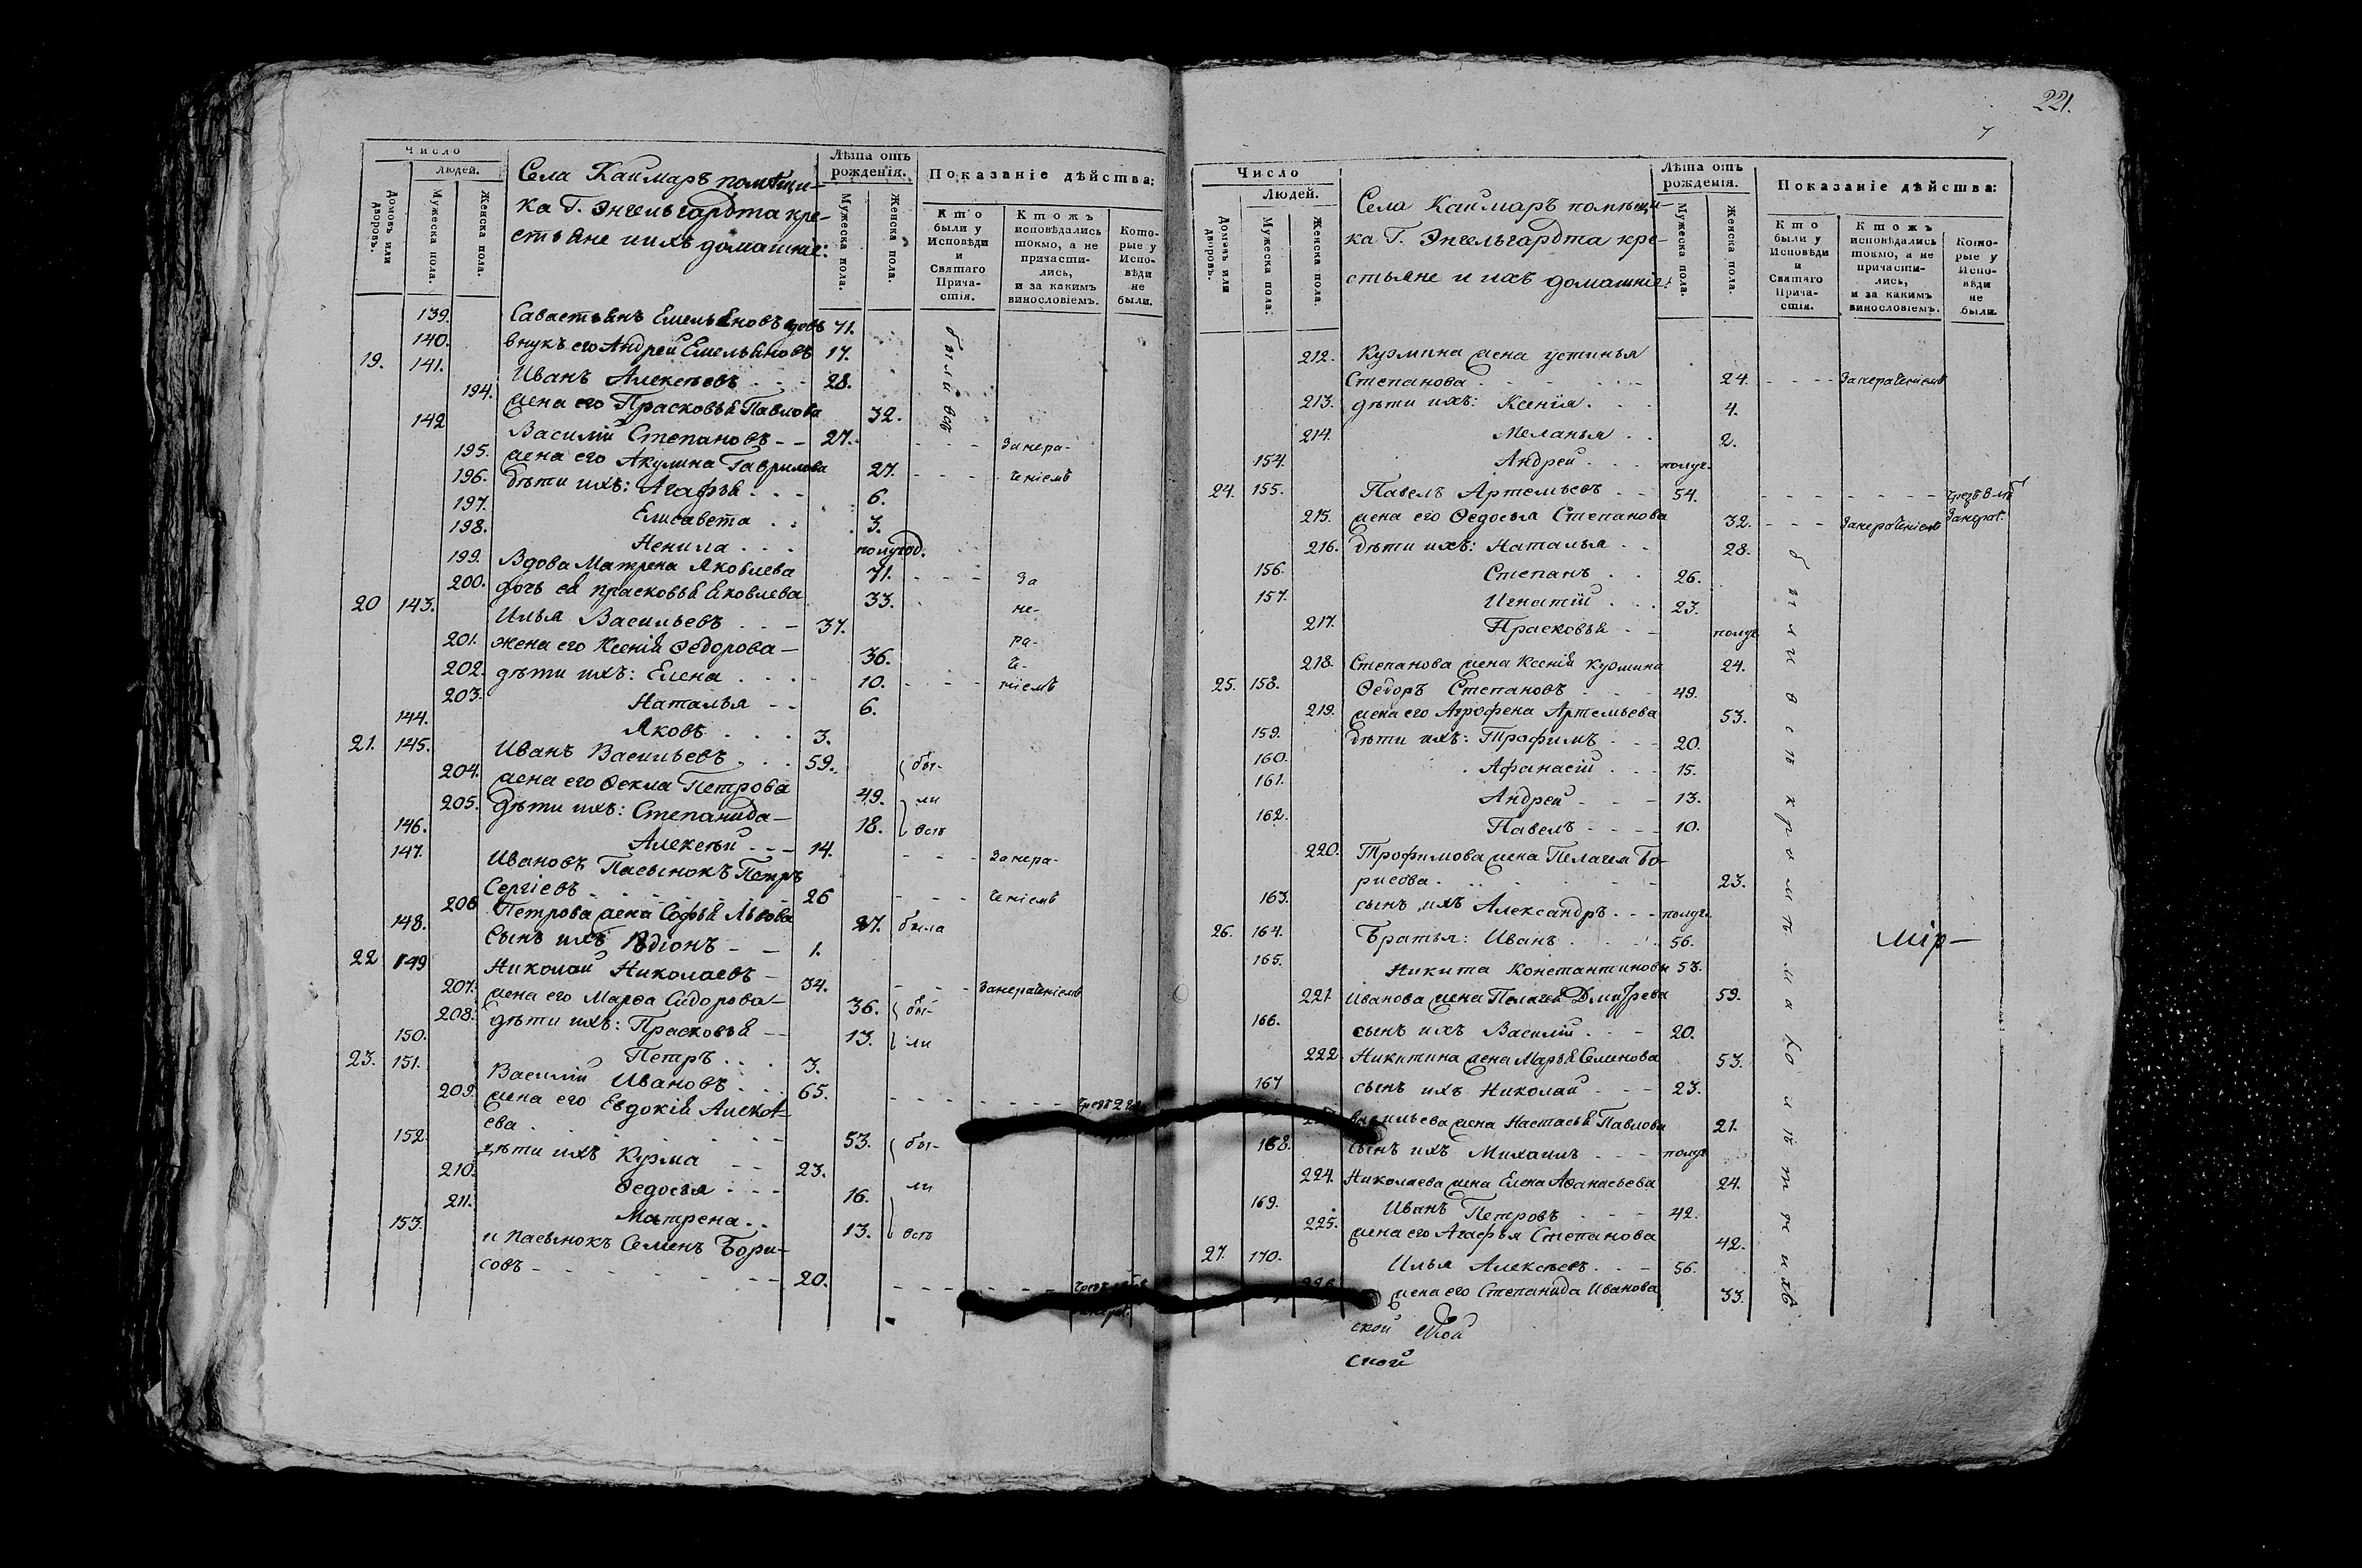 Число
Людей.
Домовъ или дворовъ.
Мужеска пола.
Женска пола.
Села Каимаръ помѣщи-
ка Г. Энгельгардта кре-
стьяне и ихъ домашніе:
Лѣта отъ рожденія.
Мужеска пола.
Женска пола.
Показаніе дѣйства:
Кто были у Исповѣди и Святаго Прича-стія.
Ктожъ исповѣдались токмо, а не причасти-лись, и за какимъ винословіемъ.
Кото-рые у Испо-вѣди не были.
139. Савастьянъ Емельяновъ вдовъ 71.
140. внукъ его Андрей Емельяновъ 17.
19. 141. Иванъ Алексѣевъ 28.
194. жена его Прасковья Павлова 32.
были всѣ
142 Василій Степановъ 27. За нера-
195. жена его Акулина Гаврилова 27. ченіемъ
196. дѣти ихъ: Агафья 6.
197. Елисавета 3.
198. Ненила полугод.
199. Вдова Матрена Яковлева 71. За
200. дочь ея Прасковья Яковлева 33.
20 143. Илья Васильевъ 37. не-
201. жена его Ксенія Ѳедорова 36. ра-
202. дѣти ихъ: Елена 10. че-
ніемъ
203. Наталья 6.
144. Яковъ 3.
21. 145. Иванъ Васильевъ 59. бы-
204. жена его Ѳекла Петрова 49. ли
205. дѣти ихъ: Степанида 18. всѣ
146. Алексѣй 14.
147. Ивановъ Пасынокъ Петръ
Сергіевъ 26 За нера-
ченіемъ
206 Петрова жена Софья Львова 27. была
148. Сынъ ихъ Родіонъ 1.
22 149 Николай Николаевъ 34. За нераченіемъ
207. жена его Марѳа Сидорова 36. бы-
208. дѣти ихъ: Прасковья 13. ли
150. Петръ 3.
23. 151. Василій Ивановъ 65.
209. жена его Евдокія Алексѣ-
ева 53. бы-
152. дѣти ихъ Кузма 23.
210. Ѳедосья 16. ли
211. Матрена 13. всѣ
153. и пасынокъ Семенъ Бори-
совъ 20.
221.
Число
Людей.
Домовъ или дворовъ.
Мужеска пола.
Женска пола.
Села Каимаръ помѣщи-
ка Г. Энгельгардта кре-
стьяне и ихъ домашніе:
Лѣта отъ рожденія.
Мужеска пола.
Женска пола.
Показаніе дѣйства:
Кто были у Исповѣди и Святаго Прича-стія.
Ктожъ исповѣдались токмо, а не причасти-лись, и за какимъ винословіемъ.
Кото-рые у Испо-вѣди не были.
212. Кузмина жена Устинья
Степанова 24. За нераченіемъ
213. дѣти ихъ: Ксенія 4.
214. Меланья 2.
154. Андрей полуг.
24. 155. Павелъ Артемьевъ 54.
215. жена его Ѳедосья Степанова 32. За нераченіемъ
216. дѣти ихъ: Наталья 28.
156. Степанъ 26.
157. Игнатій 23.
217. Прасковья полуг.
218. Степанова жена Ксенія Кузмина 24.
25. 158. Ѳедоръ Степановъ 49.
219. жена его Агрофена Артемьева 53.
159. дѣти ихъ: Трофимъ 20.
160. Афанасій 15.
161. Андрей 13.
162. Павелъ 10.
220. Трофимова жена Пелагея Бо-
рисова 23.
163. сынъ ихъ Александръ полуг.
26. 164. Братья: Иванъ 56.
165. Никита Константиновы 53.
221. Иванова жена Пелагея Дмитрева 59.
166. сынъ ихъ Василій 20.
222. Никитина жена Марья Семенова 53.
167 сынъ ихъ Николай 23.
Васильева жена Настасья Павлова 21.
168. сынъ ихъ Михаилъ полуг.
224. Николаева жена Елена Аѳанасьева 24.
169. Иванъ Петровъ 42.
225. жена его Агафья Степанова 42.
27. 170. Илья Алексѣевъ 56.
226. жена его Степанида Иванова 33.
были всѣ кромѣ малолѣтнихъ
Мір-
ской
ской